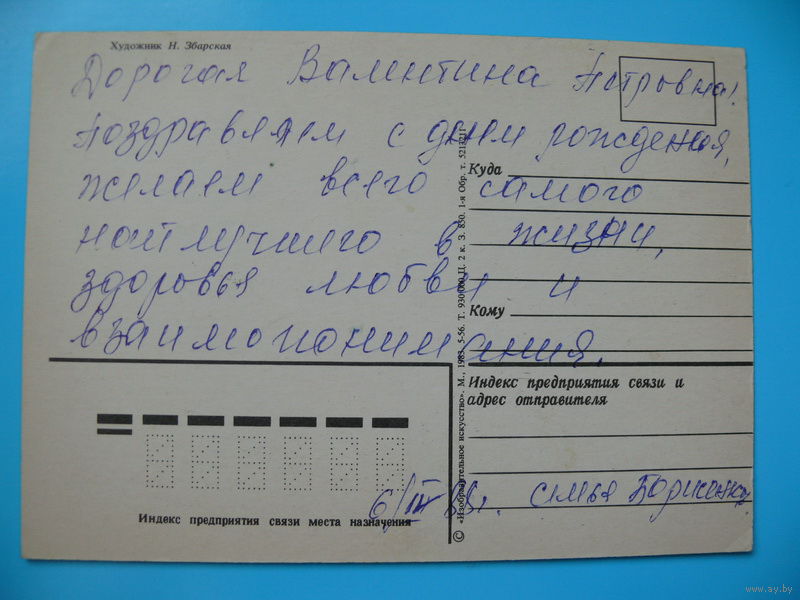 Художник Н. Збарская
Дорогая Валентина Петровна!
Поздравляем с днем рождения,
желаем всего самого
наилучшего в жизни,
здоровья любви и
взаимопонимания.
Куда
Кому
Индекс предприятия связи и
адрес отправителя
6/III
семья
Индекс предприятия связи места назначения
© «Изобразительное искусство». М., 1985. 5-56. Т. 930 000. Ц. 2 к. З. 850. 1-я Обр. т.
www.ay.by